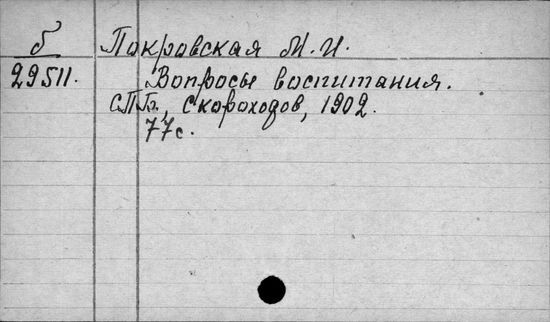 б Покровская М. И.
29511. Вопросы воспитания.
СПБ., Скороходов, 1902.
77 с.